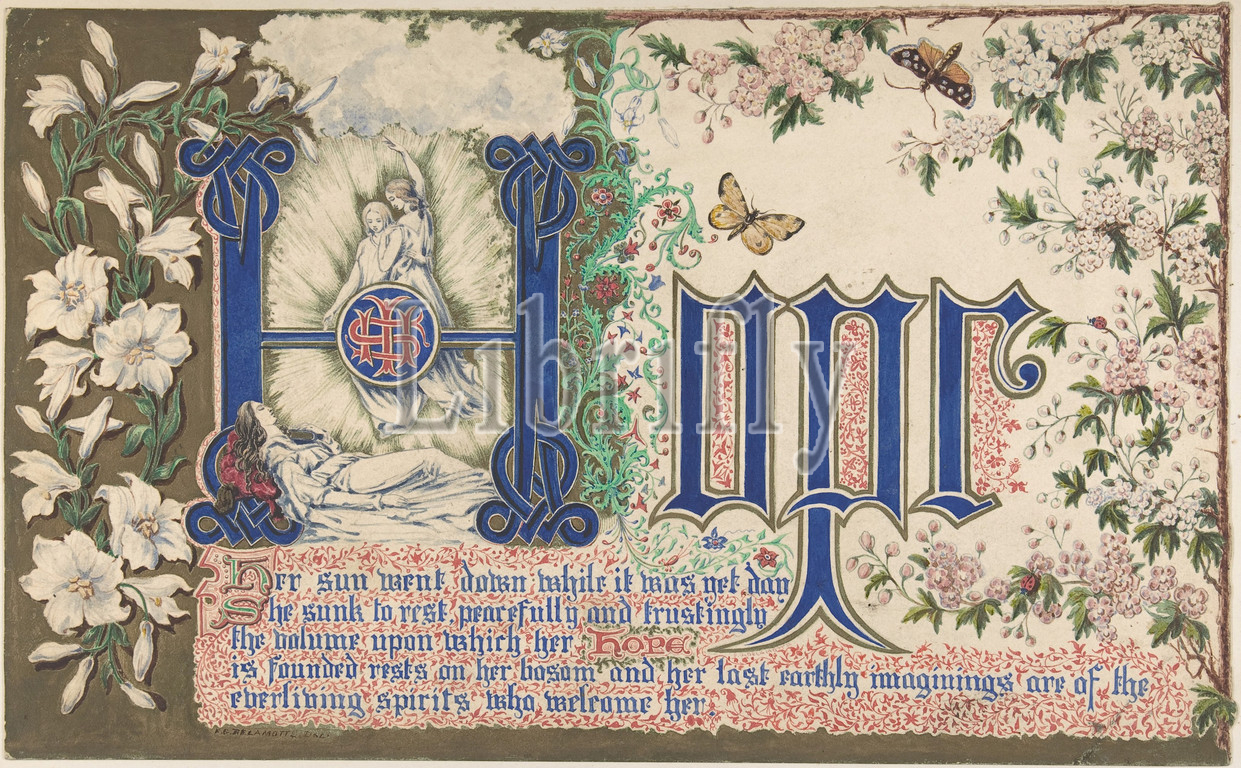 Hope
IHS
Her sun went down while it was yet day
She sunk to rest peacefully and trustingly
the volume upon which her hope
is founded rests on her bosom and her last earthly imaginings are of the
everliving spirits who welcome her.
F. G. DELAMOTTE, DEL.
Librifly